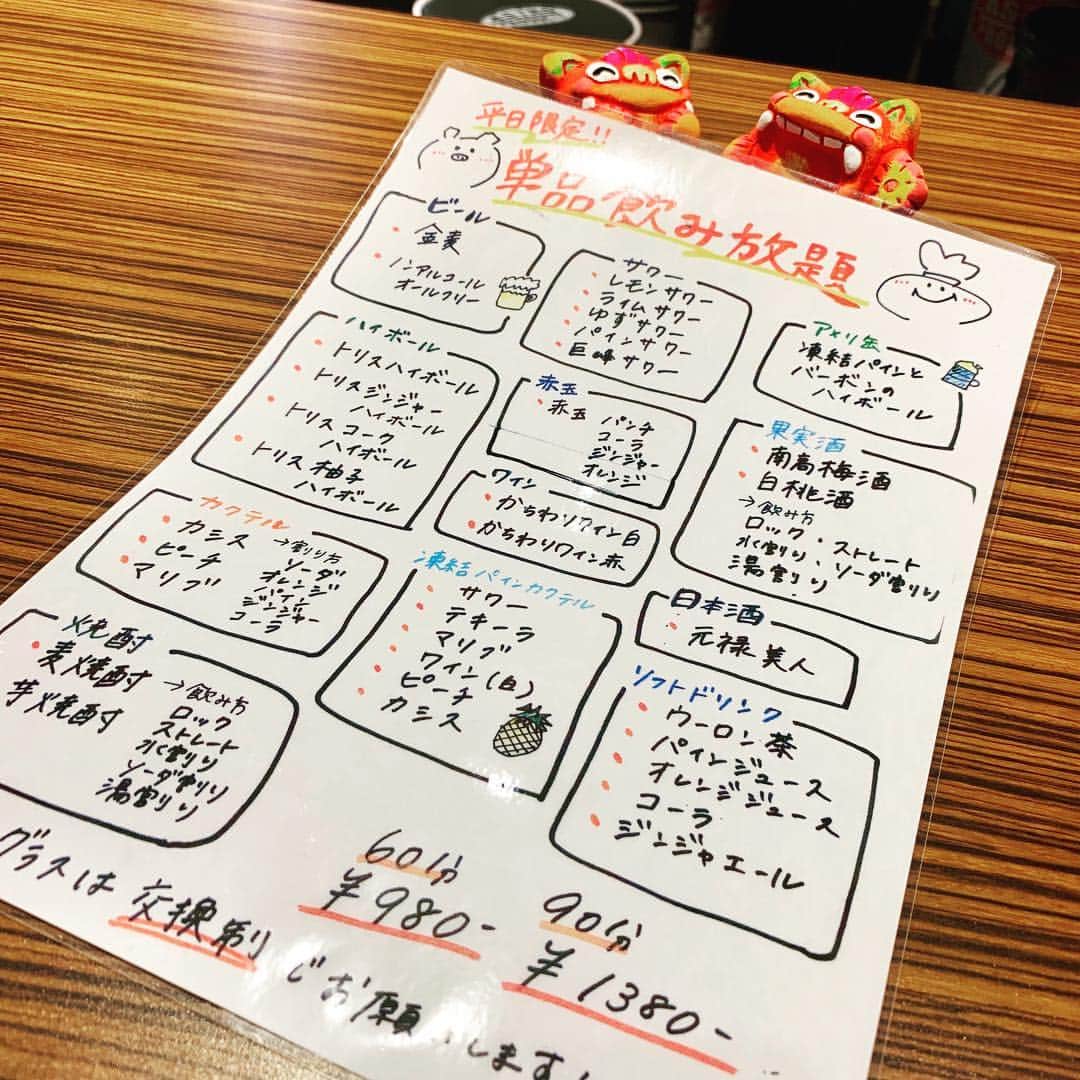 平日限定!!
単品飲み放題
ビール
・金麦
・ノンアルコール
オールフリー
サワー
・レモンサワー
・ライムサワー
・ゆずサワー
・パインサワー
・巨峰サワー
アメリ缶
凍結パインと
バーボンの
ハイボール
ハイボール
・トリスハイボール
・トリスジンジャー
ハイボール
・トリスコーク
ハイボール
・トリス柚子
ハイボール
赤玉
・赤玉 パンチ
コーラ
ジンジャー
オレンジ
果実酒
・南高梅酒
・白桃酒
→飲み方
ロック・ストレート
水割り・ソーダ割り
湯割り
ワイン
・かちわりワイン白
・かちわりワイン赤
カクテル
・カシス →割り方
・ピーチ ソーダ
・マリブ オレンジ
パイン
ジンジャー
コーラ
凍結パインカクテル
・サワー
・テキーラ
・マリブ
・ワイン(白)
・ピーチ
・カシス
日本酒
・元禄美人
焼酎
・麦焼酎 →飲み方
芋焼酎 ロック
ストレート
水割り
ソーダ割り
湯割り
ソフトドリンク
・ウーロン茶
・パインジュース
・オレンジジュース
・コーラ
・ジンジャエール
60分
¥980-
90分
¥1380-
グラスは交換制でお願いします!